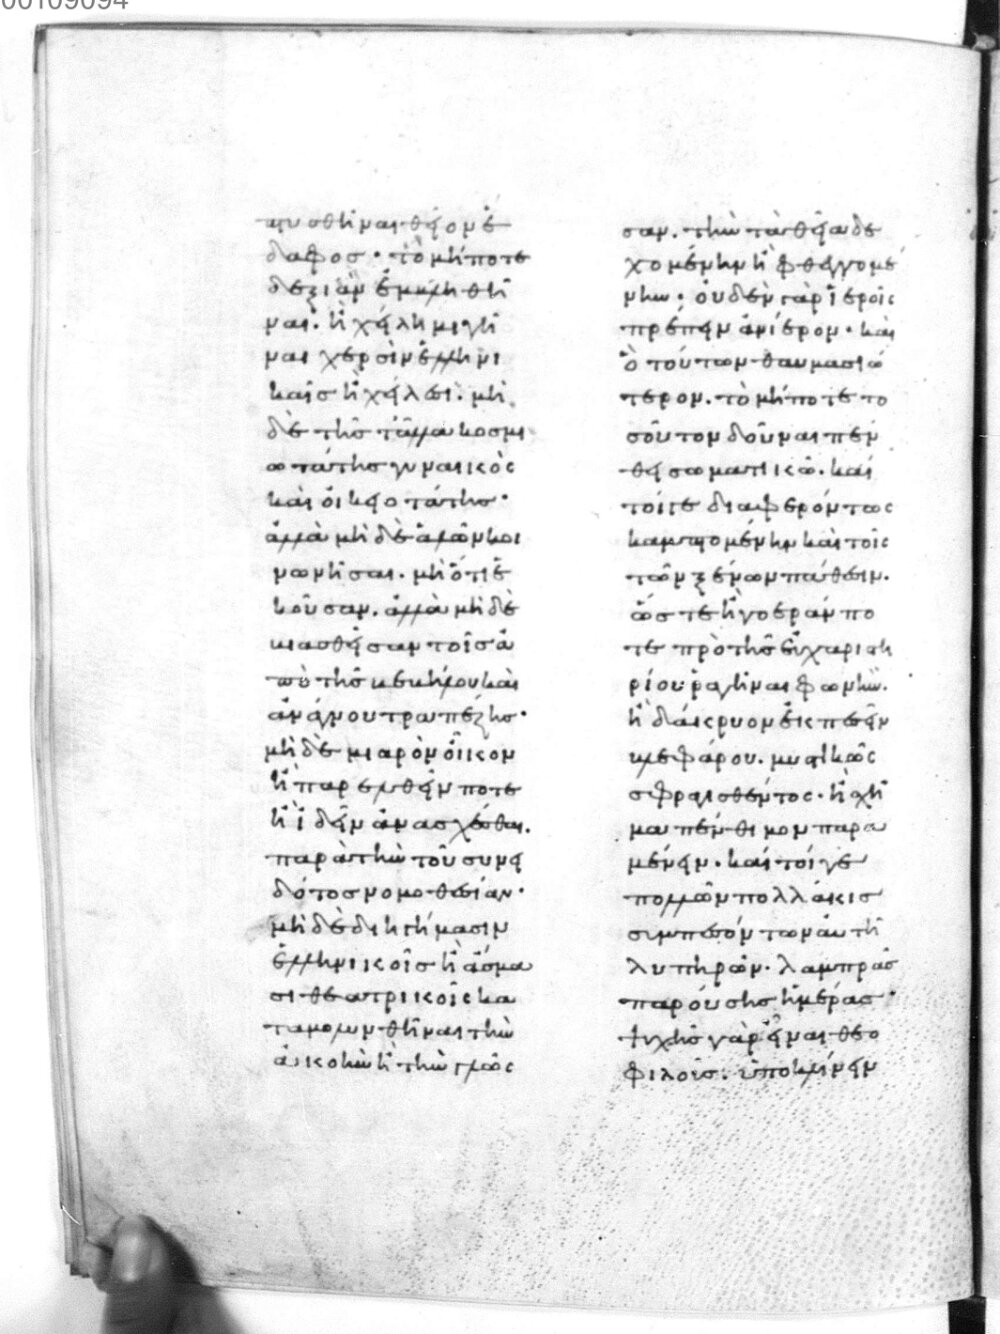 00109094
πτυσθῆναι θεῖον ἔ
δαφος· τὸ μήποτε
δεξιὰν ἐμπλήθῆ
ναι. ἢ χείλη μιγῆ
ναι χερσὶν ἑλληνι
καῖς ἢ χείλεσι. μὴ
δὲ τῆς τἄλλα κοσμι
ωτάτης γυναικὸς
καὶ οἰκειοτάτης·
ἀλλὰ μὴ δὲ ἁλῶν κοι
νωνῆσαι. μὴ ὅτι ἑ
κοῦσαν. ἀλλὰ μὴ δὲ
βιασθεῖσαν τοῖς ἀ
πὸ τῆς βεβήλου καὶ
ἀνάγνου τραπέζης·
μὴ δὲ μιαρὸν οἶκον
ἢ παρελθεῖν ποτε
ἢ ἰδεῖν ἀνασχέσθαι.
παρὰ τὴν τοῦ συνει
δότος νομοθεσίαν·
μὴ δὲ διηγήμασιν
ἑλληνικοῖς ἢ ἄσμα
σι θεατρικοῖς κα
ταμολυνθῆναι τὴν
ἀκοὴν ἢ τὴν γλῶς
σαν. τὴν τὰ θεῖα δε
χομένην ἢ φθεγγομέ
νην· οὐδὲν γὰρ ἱεροῖς
πρέπειν ἀνίερον· καὶ
ὃ τούτων θαυμασιώ
τερον. τὸ μήποτε το
σοῦτον δοῦναι πέν
θει σωματικῶ. καί
τοίγε διαφερόντως
καμπτομένην καὶ τοῖς
τῶν ξένων πάθεσιν.
ὥστε ἢ γοερὰν πο
τε πρὸ τῆς εὐχαριστη
ρίου ῥαγῆναι φωνήν.
ἢ δάκρυον ἐκπεσεῖν
βλεφάρου. μυστικῶς
σφραγισθέντος· ἢ σχῆ
μα πένθιμον παρα
μένειν. καί τοί γε
πολλῶν πολλάκις
συμπεσόντων αὐτῆ
λυπηρῶν. λαμπρᾶς
παρούσης ἡμέρας·
ψυχῆς γὰρ εἶναι θεο
φιλοῦς. ὑποκλίνειν